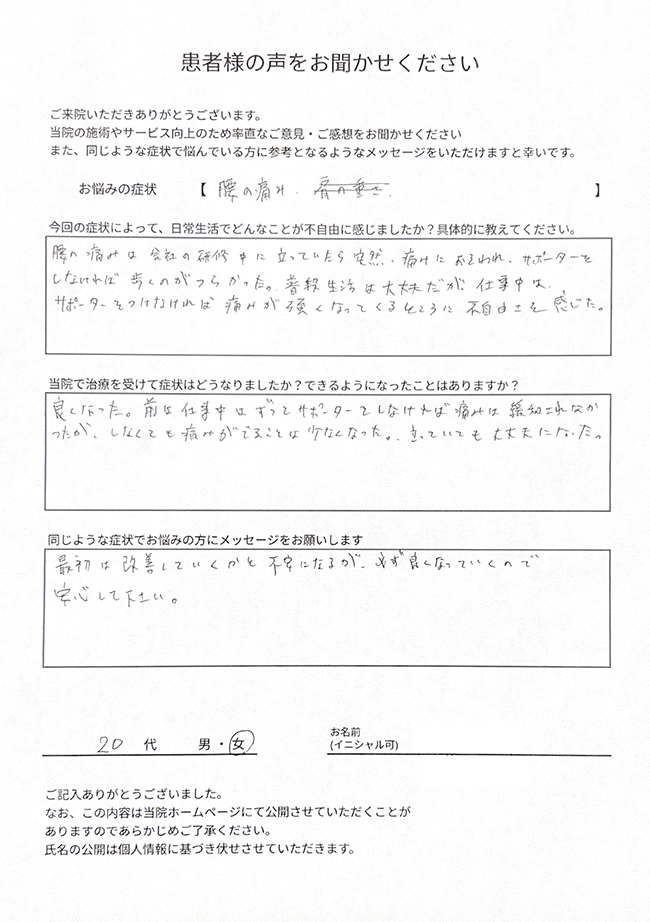 患者様の声をお聞かせください
ご来院いただきありがとうございます。
当院の施術やサービス向上のため率直なご意見・ご感想をお聞かせください
また、同じような症状で悩んでいる方に参考となるようなメッセージをいただけますと幸いです。
お悩みの症状 【 腰の痛み. 肩の重さ. 】
今回の症状によって、日常生活でどんなことが不自由に感じましたか？具体的に教えてください。
腰の痛みは会社の研修中に立っていたら突然、痛みにおそわれ、サポーターを
しなければ歩くのがつらかった。普段生活は大丈夫だが、仕事中は、
サポーターをつけなければ痛みが強くなってくるところに不自由さを感じた。
当院で治療を受けて症状はどうなりましたか？できるようになったことはありますか？
良くなった。前は仕事中はずっとサポーターをしなければ痛みは緩和されなか
ったが、しなくても痛みがでることは少なくなった。立っていても大丈夫になった。
同じような症状でお悩みの方にメッセージをお願いします
最初は改善していくかと不安になるが、必ず良くなっていくので
安心して下さい。
20 代 男・女
お名前
(イニシャル可)
ご記入ありがとうございました。
なお、この内容は当院ホームページにて公開させていただくことが
ありますのであらかじめご了承ください。
氏名の公開は個人情報に基づき伏せさせていただきます。